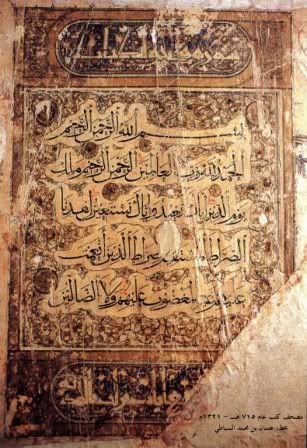 بسم الله الرحمن الرحيم
الحمد لله رب العالمين الرحمن الرحيم ملك
يوم الدين اياك نعبد واياك نستعين اهدنا
الصراط المستقيم صراط الذين أنعمت
عليهم غير المغضوب عليهم ولا الضالين
مصحف كتب عام ٧١٥ هـ - ١٣٢١م
بخط: عثمان بن محمد